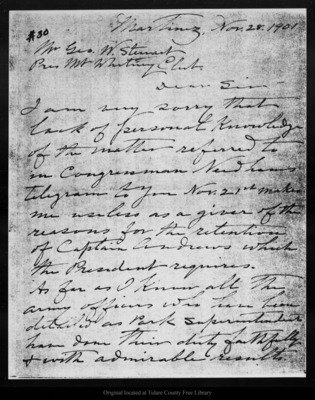 #30
Martinez, Nov. 28. 1901
Mr Geo. W. Stewart
Pres Mt Whitney Club.
Dear Sir
I am very sorry that
lack of personal knowledge
of the matter referred to
in Congressman Needhams
telegram to you Nov. 21st makes
me useless as a giver of the
reasons for the retention
of Captain Andrews which
the President requires.
As far as I know all the
army officers who have been
detailed as Park Superintendents
have done their duty faithfully
& with admirable results.
Original located at Tulare County Free Library